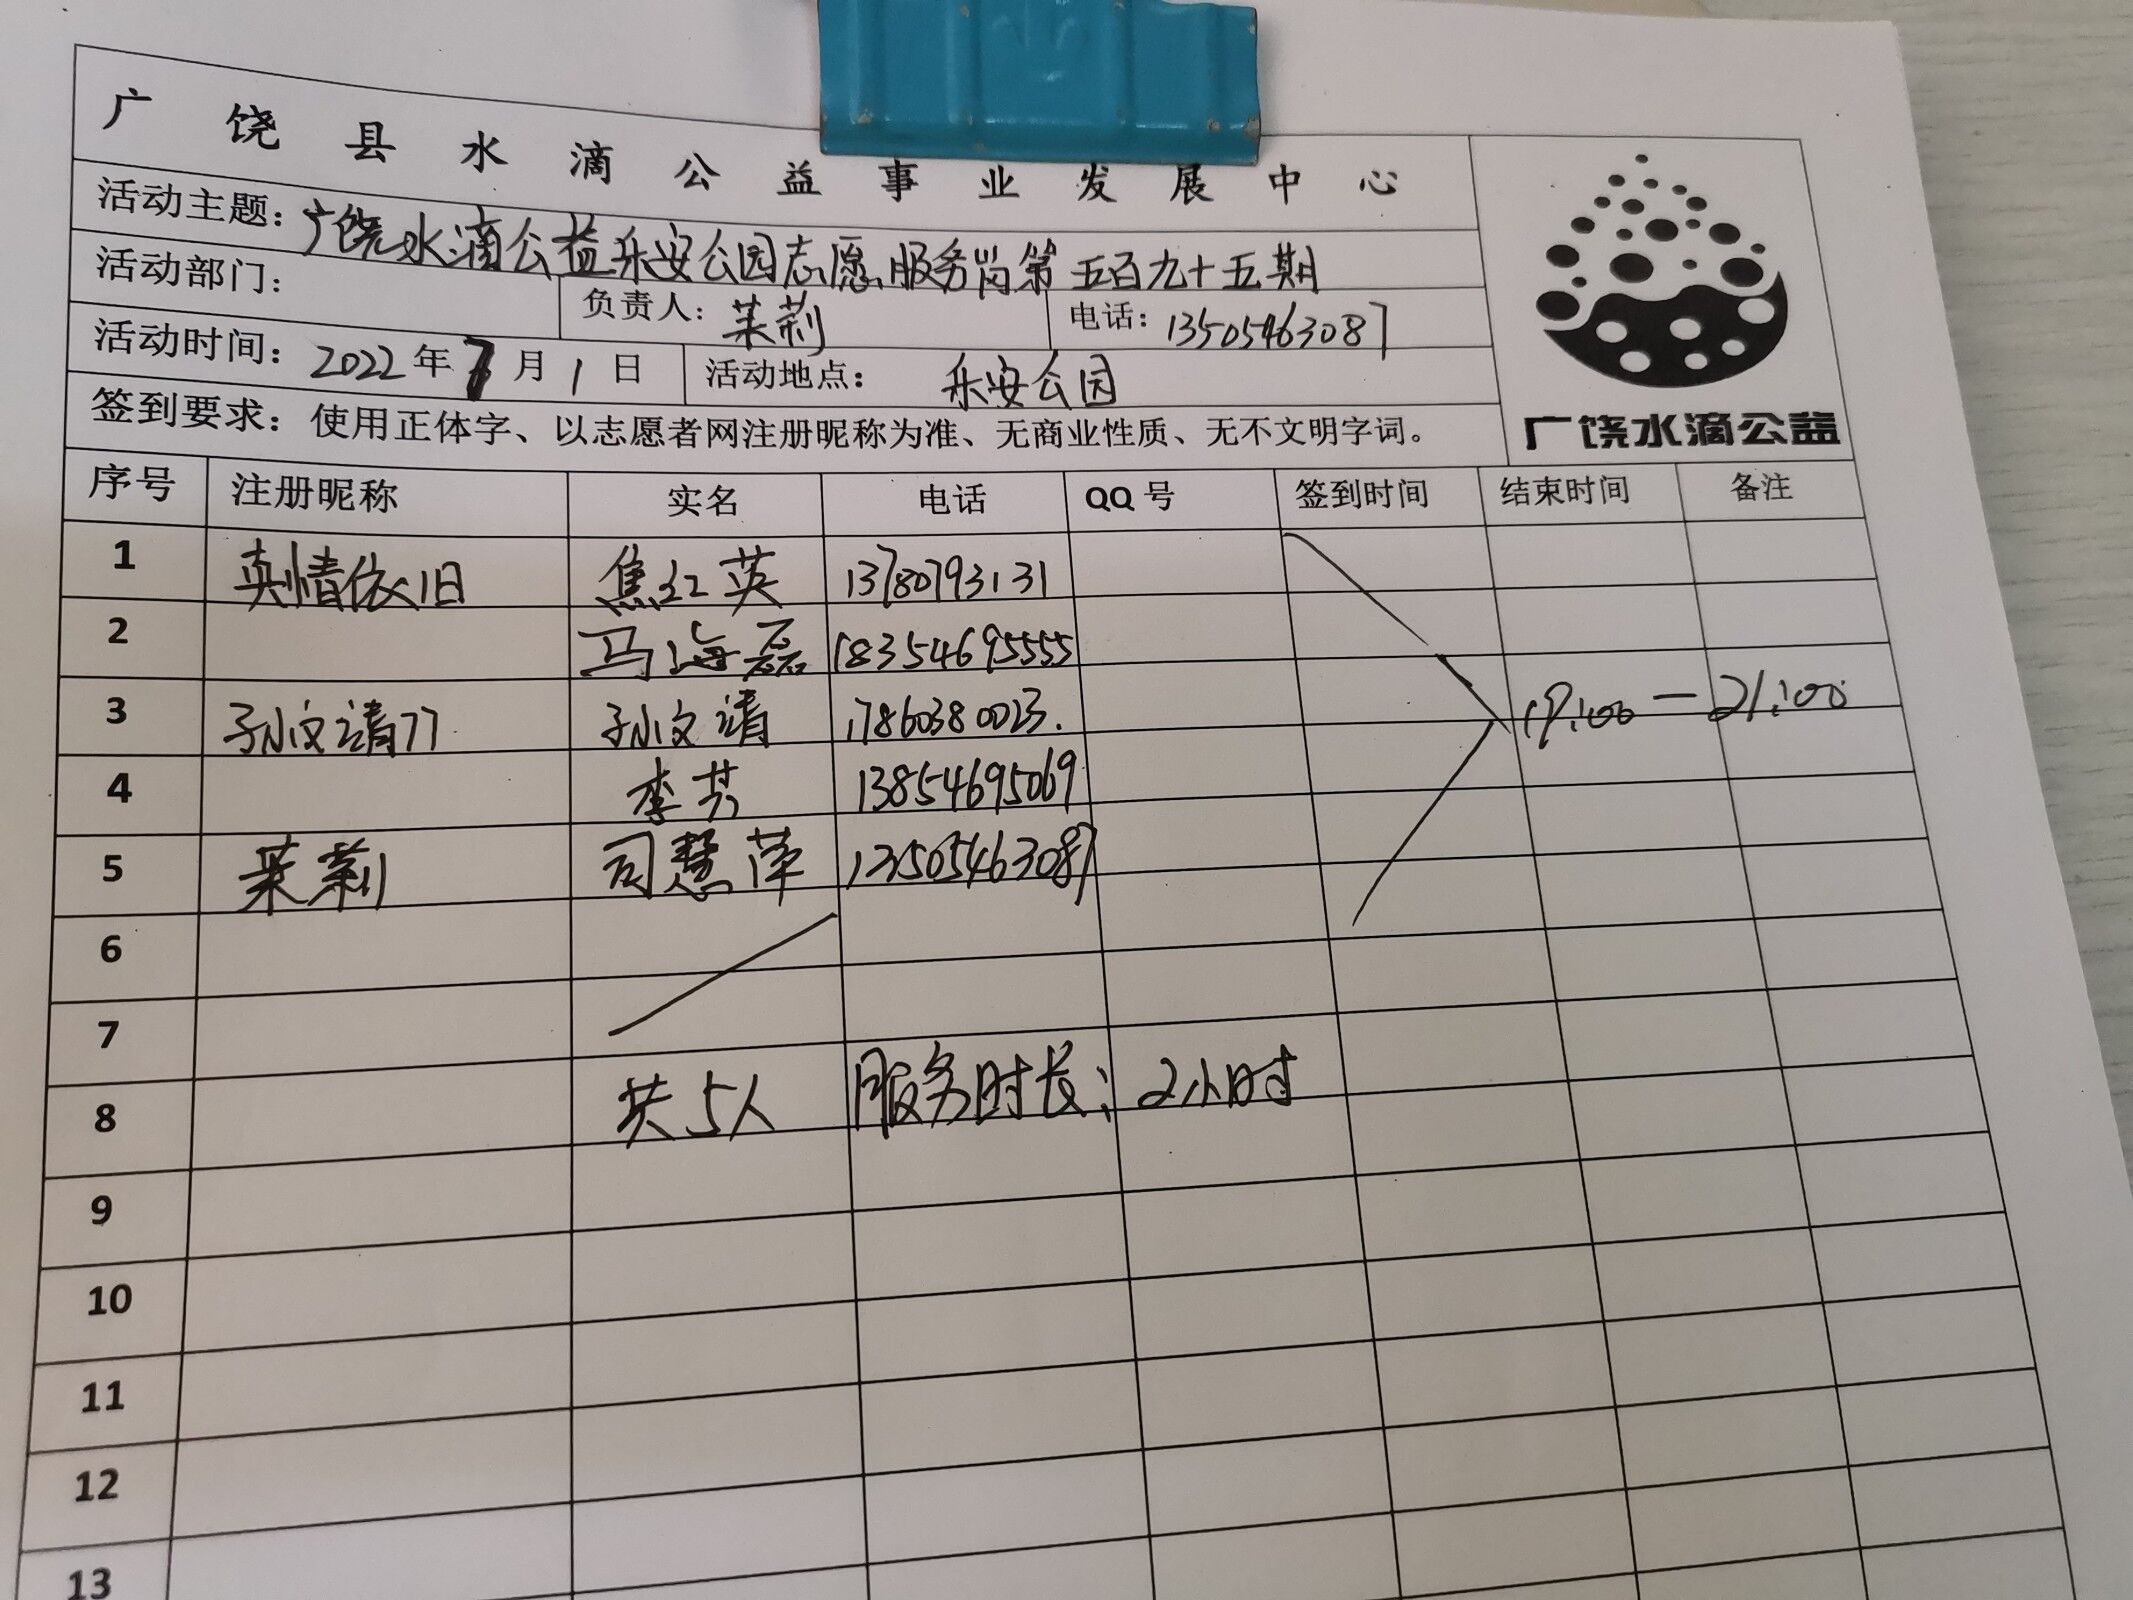 广饶县水滴公益事业发展中心
活动主题：广饶水滴公益乐安公园志愿服务岗第五百九十五期
活动部门： 负责人：茉莉 电话：13505463087
活动时间：2022年7月1日 活动地点：乐安公园
签到要求：使用正体字、以志愿者网注册昵称为准、无商业性质、无不文明字词。
广饶水滴公益
序号 注册昵称 实名 电话 QQ号 签到时间 结束时间 备注
1 真情依旧 焦红英 13780793131
2 马海磊 18354695555
3 孙文请77 孙文请 17860380023. 19:00—21:00
4 李芳 13854695069
5 茉莉 司慧萍 13505463087
6
7
8 共5人 服务时长：2小时
9
10
11
12
13